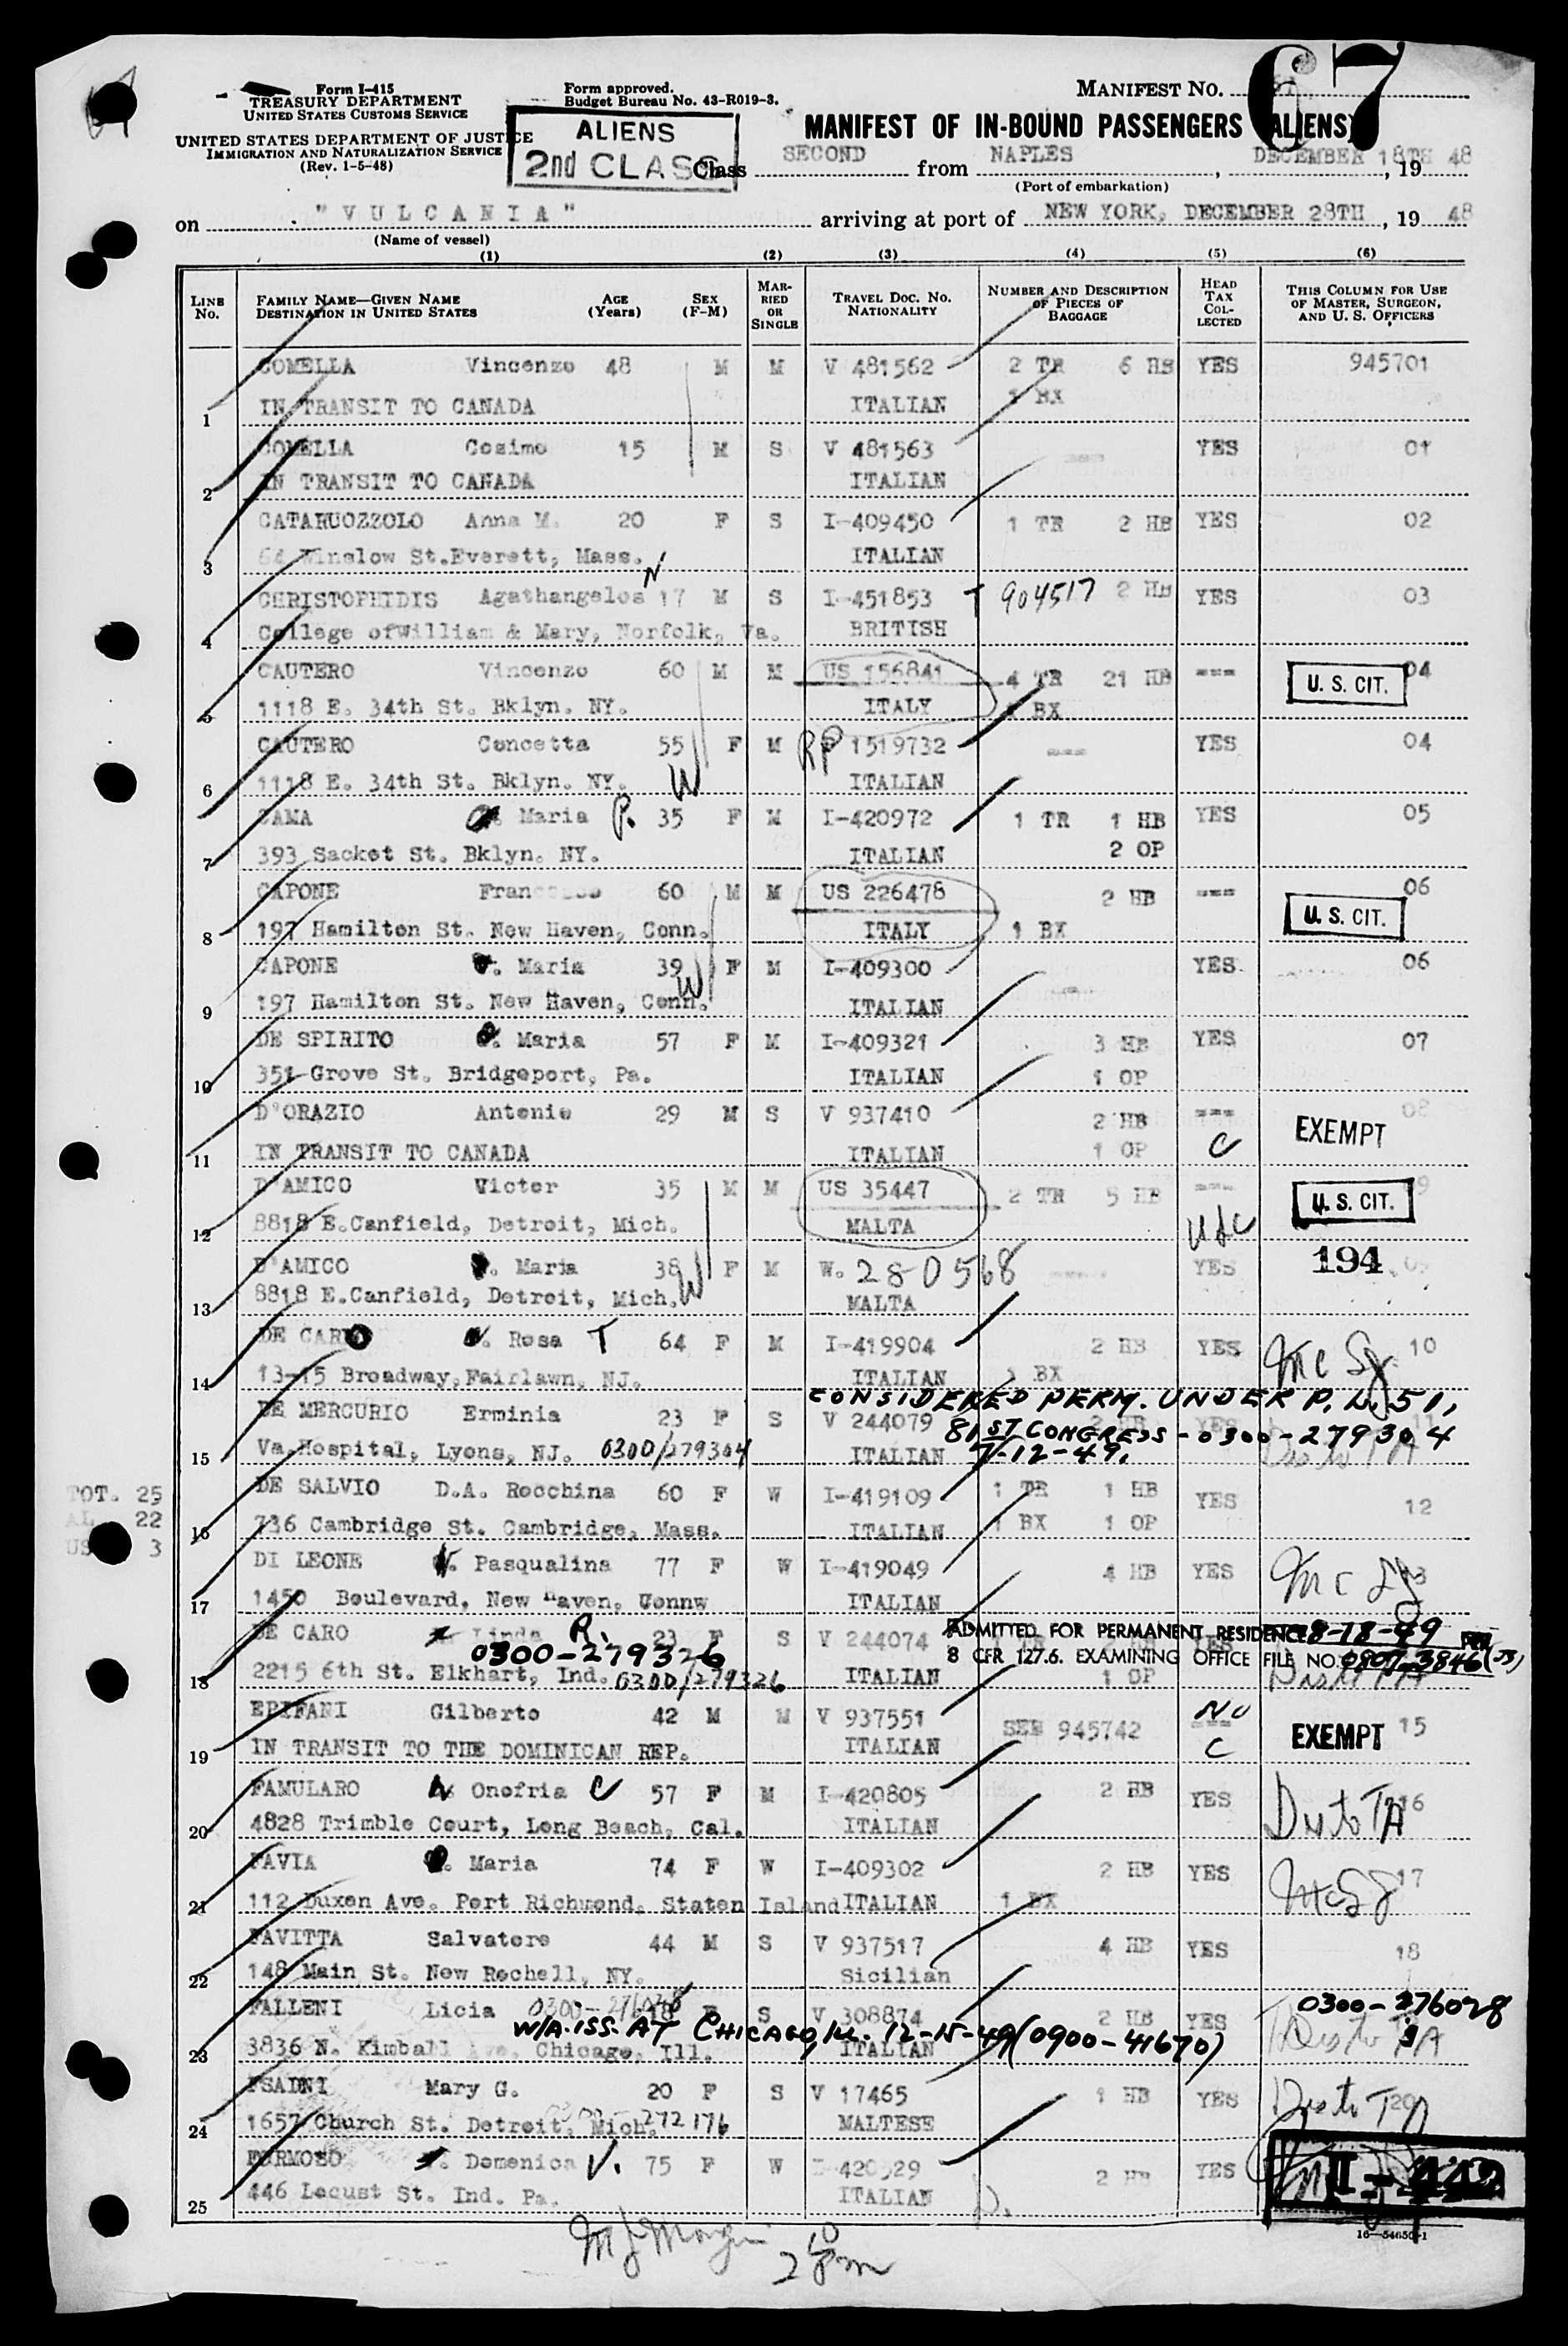 Form I-415
TREASURY DEPARTMENT
UNITED STATES CUSTOMS SERVICE
UNITED STATES DEPARTMENT OF JUSTICE
IMMIGRATION AND NATURALIZATION SERVICE
(Rev. 1-5-48)
Form approved.
Budget Bureau No. 43-R019-3.
ALIENS
2nd CLASS
MANIFEST NO. 67
MANIFEST OF IN-BOUND PASSENGERS (ALIENS)
Class SECOND from NAPLES, DECEMBER 18TH, 19 48
(Port of embarkation)
on "VULCANIA" arriving at port of NEW YORK, DECEMBER 28TH, 19 48
(Name of vessel)
(1) (2) (3) (4) (5) (6)
LINE No. FAMILY NAME—GIVEN NAME DESTINATION IN UNITED STATES AGE (Years) SEX (F-M) MARRIED OR SINGLE TRAVEL DOC. NO. NATIONALITY NUMBER AND DESCRIPTION OF PIECES OF BAGGAGE HEAD TAX COLLECTED THIS COLUMN FOR USE OF MASTER, SURGEON, AND U. S. OFFICERS
COMELLA Vincenzo 48 M M V 481562 2 TR 6 HB YES 945701
1 IN TRANSIT TO CANADA ITALIAN 1 BX
COMELLA Cosimo 15 M S V 481563 --- YES 01
2 IN TRANSIT TO CANADA ITALIAN
CATARUOZZOLO Anna M. 20 F S I-409450 1 TR 2 HB YES 02
3 64 Winslow St.Everett, Mass. ITALIAN
CHRISTOPHIDIS Agathangelos N 17 M S I-451853 904517 2 HB YES 03
4 College ofWilliam & Mary, Norfolk, Va. BRITISH
CAUTERO Vincenzo 60 M M US 156841 4 TR 21 HB --- U. S. CIT. 04
5 1118 E. 34th St. Bklyn. NY. ITALY 1 BX
CAUTERO Concetta 55 F M RP 1519732 --- YES 04
6 1118 E. 34th St. Bklyn. NY. W ITALIAN
CAMA Maria P. 35 F M I-420972 1 TR 1 HB YES 05
7 393 Sacket St. Bklyn. NY. ITALIAN 2 OP
CAPONE Francesco 60 M M US 226478 2 HB --- U. S. CIT. 06
8 197 Hamilton St. New Haven, Conn. ITALY 1 BX
CAPONE Maria 39 F M I-409300 YES 06
9 197 Hamilton St. New Haven, Conn. W ITALIAN
DE SPIRITO Maria 57 F M I-409321 3 HB YES 07
10 351 Grove St. Bridgeport, Pa. ITALIAN 1 OP
D'ORAZIO Antonio 29 M S V 937410 2 HB --- EXEMPT 08
11 IN TRANSIT TO CANADA ITALIAN 1 OP C
D'AMICO Victor 35 M M US 35447 2 TR 5 HB --- U. S. CIT. 09
12 8818 E.Canfield, Detroit, Mich. MALTA
D'AMICO Maria 38 F M W. 280568 YES 194 09
13 8818 E.Canfield, Detroit, Mich. W MALTA
DE CARO Rosa T 64 F M I-419904 2 HB YES 10
14 13-15 Broadway,Fairlawn, NJ. ITALIAN BX
CONSIDERED PERM. UNDER P. L. 51,
DE MERCURIO Erminia 23 F S V 244079 81ST CONGRESS - 0300-279304
15 Va.Hospital, Lyons, NJ. 0300/279304 ITALIAN 7-12-49.
TOT. 25
AL 22
US 3
DE SALVIO D.A. Rocchina 60 F W I-419109 1 TR 1 HB YES 12
16 736 Cambridge St. Cambridge, Mass. ITALIAN 1 BX 1 OP
DI LEONE Pasqualina 77 F W I-419049 4 HB YES 13
17 1450 Boulevard, New Haven, Connw ITALIAN
DE CARO Linda R. 23 F S V 244074 ADMITTED FOR PERMANENT RESIDENCE 8-18-49
0300-279326 8 CFR 127.6. EXAMINING OFFICE FILE NO. 0807-3846
18 2215 6th St. Elkhart, Ind. 0300/279326 ITALIAN 1 OP
EPIFANI Gilberto 42 M M V 937551 SEE 945742 NO --- EXEMPT 15
19 IN TRANSIT TO THE DOMINICAN REP. ITALIAN C
FAMULARO Onofria C 57 F M I-420805 2 HB YES 16
20 4828 Trimble Court, Long Beach, Cal. ITALIAN
FAVIA Maria 74 F W I-409302 2 HB YES 17
21 112 Duxen Ave. Port Richmond, Staten Island ITALIAN 1 BX
FAVITTA Salvatore 44 M S V 937517 4 HB YES 18
22 148 Main St. New Rochell, NY. Sicilian
FALLENI Licia 0300-276028 18 F S V 308874 2 HB YES 0300-276028
W/A. ISS. AT CHICAGO, ILL. 12-15-49 (0900-41670)
23 3836 N. Kimball Ave. Chicago, Ill. ITALIAN
FSADNI Mary G. 20 F S V 17465 1 HB YES 20
24 1657 Church St. Detroit, Mich. 272176 MALTESE
FORMOSO Domenica V. 75 F W 2 HB YES
25 446 Locust St. Ind. Pa. ITALIAN
I-442